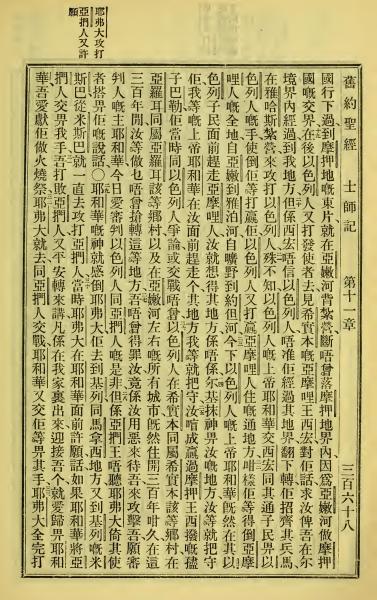 耶弗大攻打
亞捫人又許
願
舊約聖經 士師記 第十一章 三百六十八
國行下過到摩押地嘅東片就在亞嫩河背紥營斷唔曾落摩押地界內因爲亞嫩河做摩押
國嘅交界在後以色列人又打發使者去見希實本嘅亞摩哩王西宏對佢話求汝俾吾在尔
境界內經過到我地方但係西宏唔信以色列人唔准佢經過其地界翻下轉佢招齊其兵馬
在雅哈斯紥營來攻打以色列人殊不知以色列人嘅上帝耶和華交西宏同其通子民畀以
色列人嘅手使倒佢等打贏佢以色列人又打贏亞摩哩人住嘅通地方咁樣佢等得倒亞摩
哩人嘅全地自亞嫩到雅泊河自曠野到約但河今下以色列人嘅上帝耶和華旣然在其以
色列子民面前趕走亞摩哩人汝就想得其地方係唔係尔基抹神畀汝嘅地方汝等就把守
佢我等嘅上帝耶和華在汝面前趕走个其地方我等就把守汝啱成贏過摩押王西撥嘅孻
子巴勒佢當時同以色列人爭論或交戰唔曾以色列人在希實本同屬希實本該等鄉村在
亞羅耳同屬亞羅耳該等鄉村以及在亞嫩河左右嘅所有城市旣然住開三百年咁久在這
三百年開汝等做乜唔曾搶轉這等地方吾唔曾得罪汝竟係汝用惡來待吾來攻擊吾願審
判人嘅主耶和華今日愛審判以色列人同亞捫人嘅是非但係亞捫王唔聽耶弗大倚其使
者搭畀佢嘅說話〇耶和華嘅神就感倒耶弗大佢去到基列同馬拿西地方又到基列嘅米
斯巴從米斯巴就一直去攻打亞捫人當時耶弗大在耶和華面前許願話如果耶和華將亞
捫人交畀我手吾打敗亞捫人又平安轉來講凡係在我家裏出來迎接吾个就愛歸畀耶和
華吾愛獻佢做火燒祭耶弗大就去同亞捫人交戰耶和華又交佢等畀其手耶弗大全完打